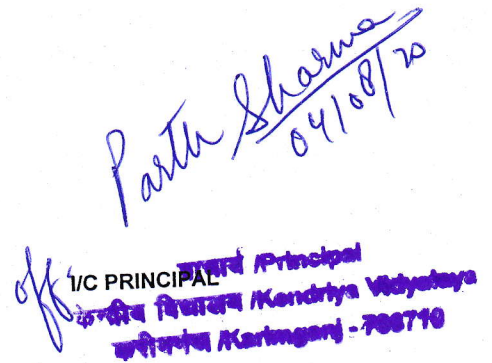 Parth Sharma
04/08/20
off. I/C PRINCIPAL
प्राचार्य /Principal
केन्द्रीय विद्यालय /Kendriya Vidyalaya
करीमगंज /Karimganj - 788710